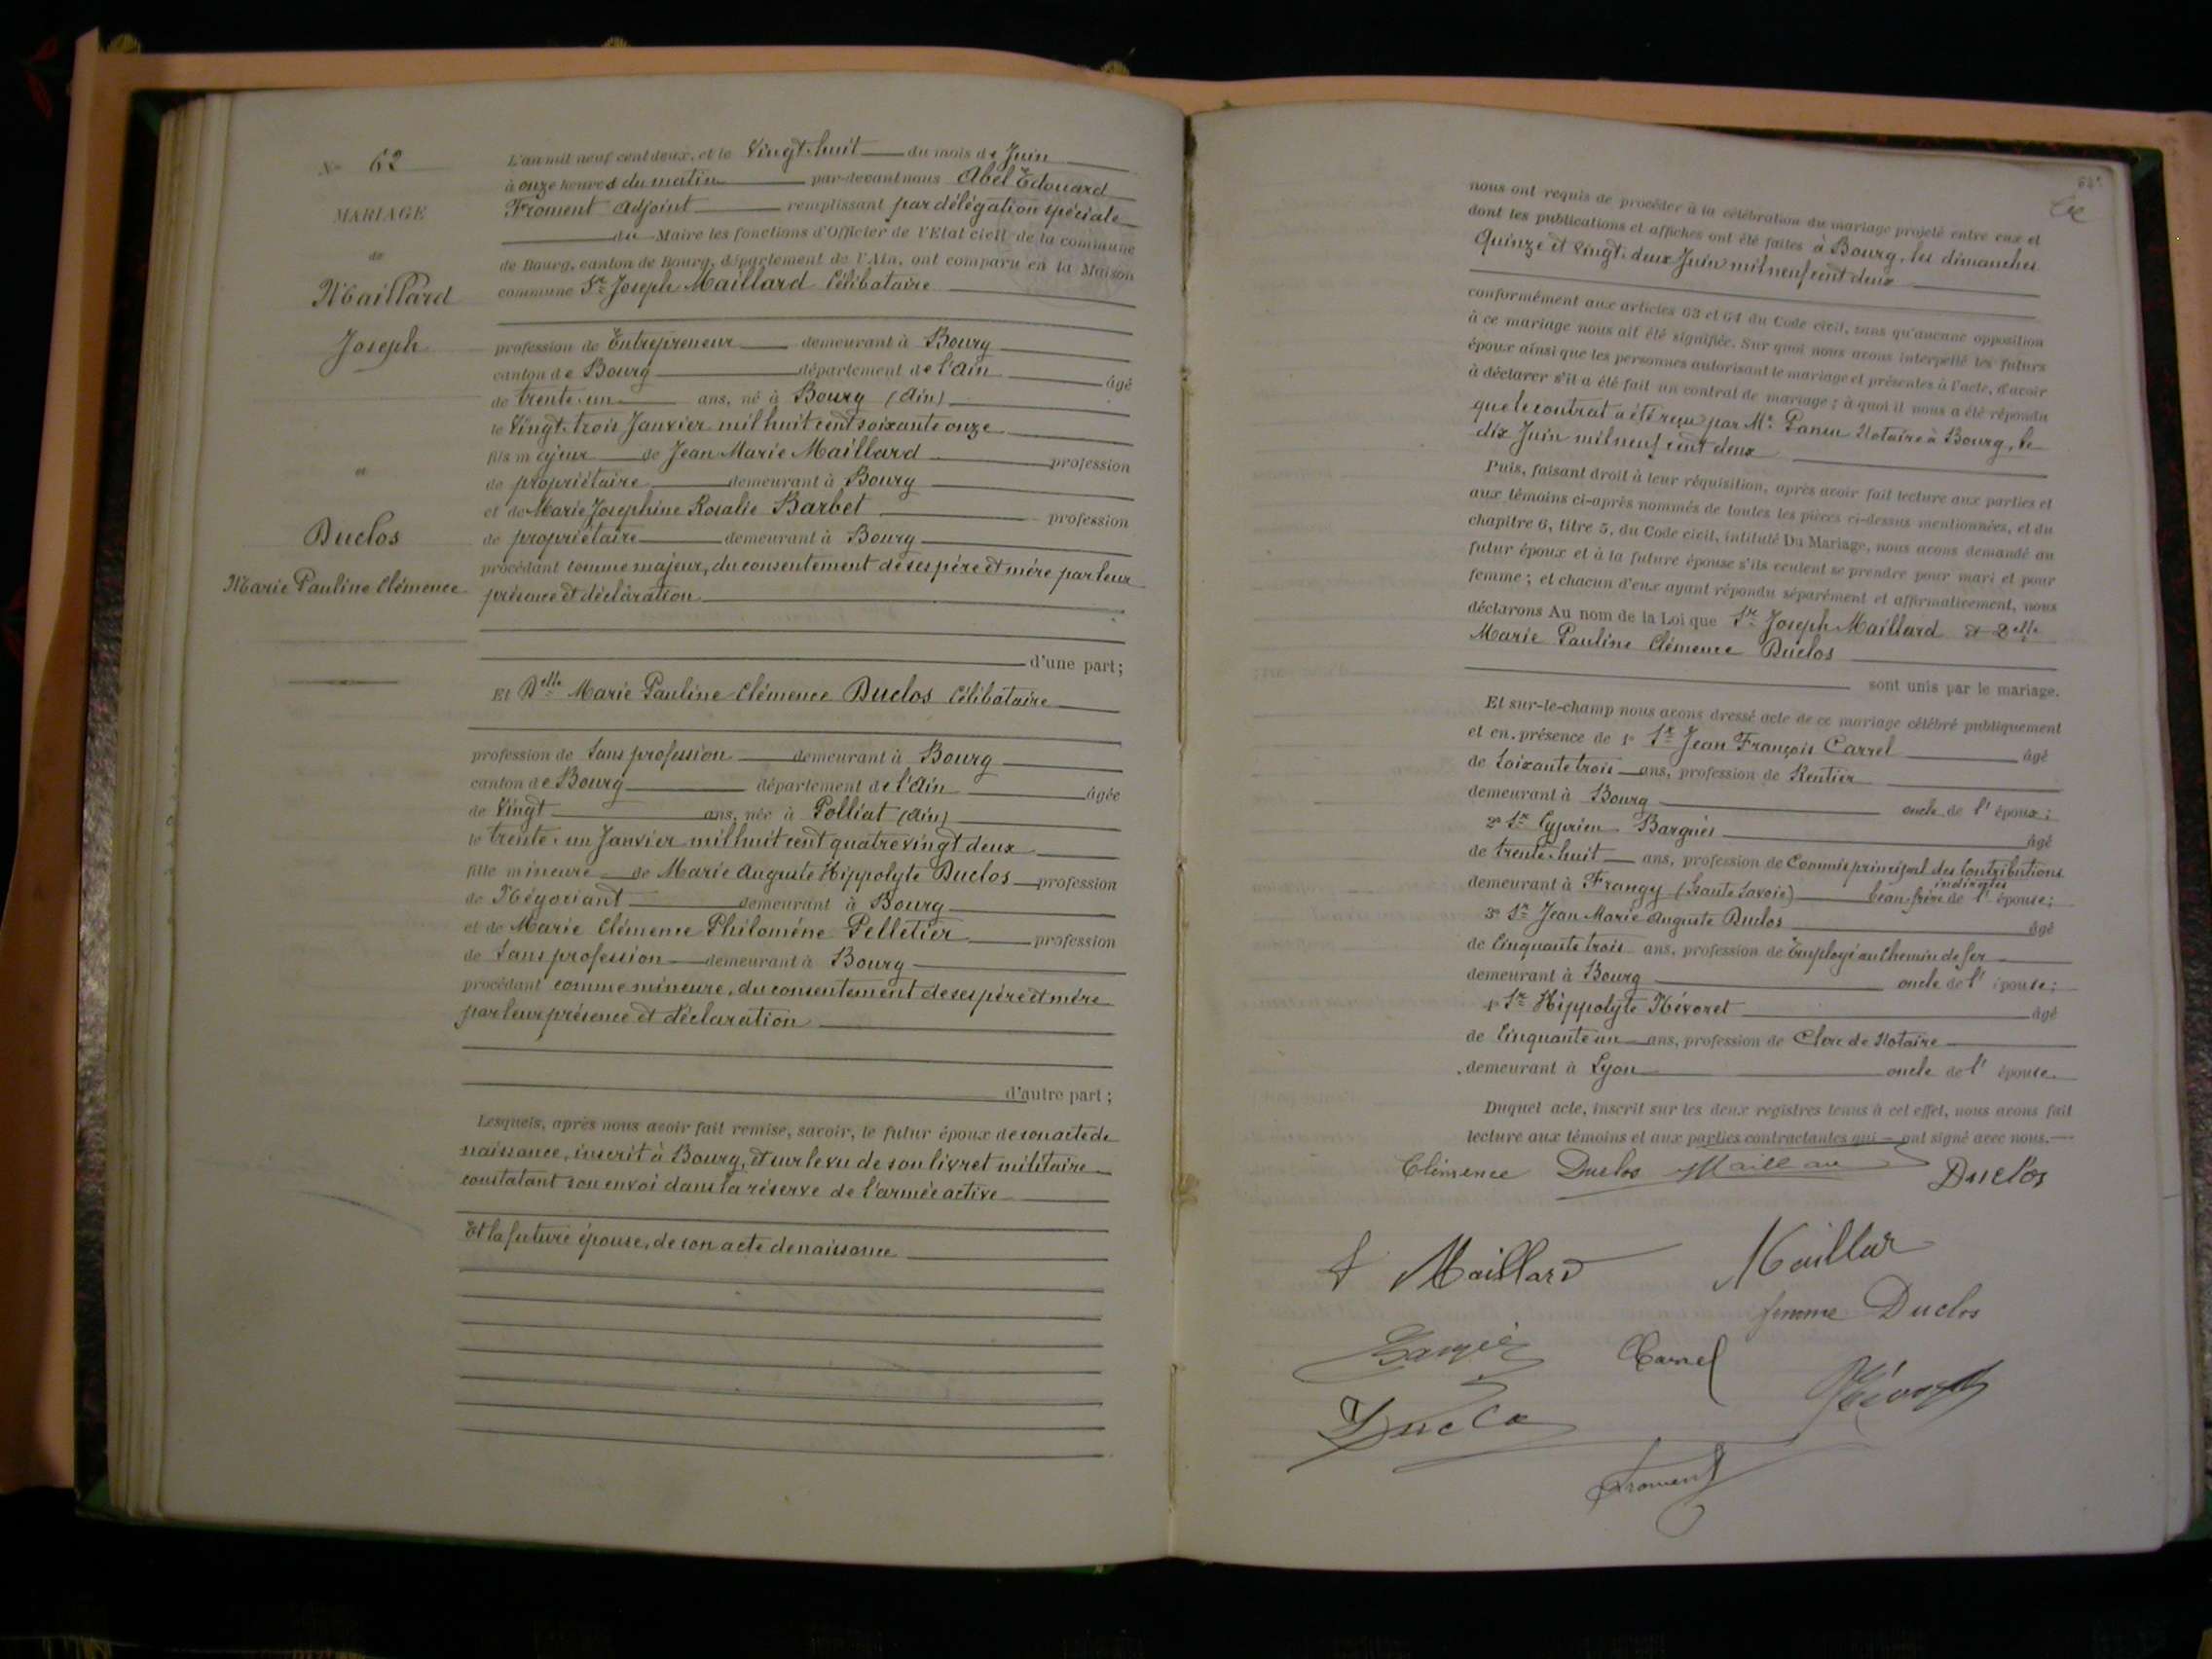 No 62
MARIAGE
de
Maillard
Joseph
et
Duclos
Marie Pauline Clémence
L'an mil neuf cent deux, et le Vingt-huit du mois de Juin
à onze heures du matin par-devant nous Abel Edouard
Froment Adjoint remplissant par délégation spéciale
du Maire les fonctions d'Officier de l'Etat civil de la commune
de Bourg, canton de Bourg, département de l'Ain, ont comparu en la Maison
commune Sr Joseph Maillard Célibataire
profession de Entrepreneur demeurant à Bourg
canton de Bourg département de l'Ain âgé
de trente-un ans, né à Bourg (Ain)
le Vingt-trois Janvier mil huit cent soixante onze
fils majeur de Jean Marie Maillard profession
de propriétaire demeurant à Bourg
et de Marie Josephine Rosalie Barbet profession
de propriétaire demeurant à Bourg
procédant comme majeur, du consentement de ses père et mère par leur
présence et déclaration
d'une part;
Et Delle Marie Pauline Clémence Duclos Célibataire
profession de Sans profession demeurant à Bourg
canton de Bourg département de l'Ain âgée
de Vingt ans, née à Polliat (Ain)
le trente-un Janvier mil huit cent quatre vingt deux
fille mineure de Marie Auguste Hippolyte Duclos profession
de Négociant demeurant à Bourg
et de Marie Clémence Philomène Pelletier profession
de Sans profession demeurant à Bourg
procédant comme mineure, du consentement de ses père et mère
par leur présence et déclaration
d'autre part;
Lesquels, après nous avoir fait remise, savoir, le futur époux de son acte de
naissance, inscrit à Bourg, et sur le vu de son livret militaire
constatant son envoi dans la réserve de l'armée active
Et la future épouse, de son acte de naissance
nous ont requis de procéder à la célébration du mariage projeté entre eux et
dont les publications et affiches ont été faites à Bourg, les dimanches
Quinze et Vingt-deux Juin mil neuf cent deux
conformément aux articles 63 et 64 du Code civil, sans qu'aucune opposition
à ce mariage nous ait été signifiée. Sur quoi nous avons interpellé les futurs
époux ainsi que les personnes autorisant le mariage et présentes à l'acte, d'avoir
à déclarer s'il a été fait un contrat de mariage; à quoi il nous a été répondu
que le contrat a été reçu par Me Notaire à Bourg, le
dix Juin mil neuf cent deux
Puis, faisant droit à leur réquisition, après avoir fait lecture aux parties et
aux témoins ci-après nommés de toutes les pièces ci-dessus mentionnées, et du
chapitre 6, titre 5, du Code civil, intitulé Du Mariage, nous avons demandé au
futur époux et à la future épouse s'ils veulent se prendre pour mari et pour
femme; et chacun d'eux ayant répondu séparément et affirmativement, nous
déclarons Au nom de la Loi que Sr Joseph Maillard et Delle
Marie Pauline Clémence Duclos
sont unis par le mariage.
Et sur-le-champ nous avons dressé acte de ce mariage célébré publiquement
et en présence de 1° Sr Jean François Carrel âgé
de Soixante trois ans, profession de Rentier
demeurant à Bourg oncle de l'époux;
2° Sr Cyprien Bargnès âgé
de trente-huit ans, profession de Commis principal des Contributions
indirectes
demeurant à Frangy (Haute Savoie) beau-frère de l'épouse;
3° Sr Jean Marie Auguste Duclos âgé
de Cinquante trois ans, profession de Employé au Chemin de fer
demeurant à Bourg oncle de l'épouse;
4° Sr Hippolyte Névoret âgé
de Cinquante un ans, profession de Clerc de Notaire
demeurant à Lyon oncle de l'épouse.
Duquel acte, inscrit sur les deux registres tenus à cet effet, nous avons fait
lecture aux témoins et aux parties contractantes qui ont signé avec nous.
Clémence Duclos Duclos
J Maillard Maillar
femme Duclos
Carrel
Froment